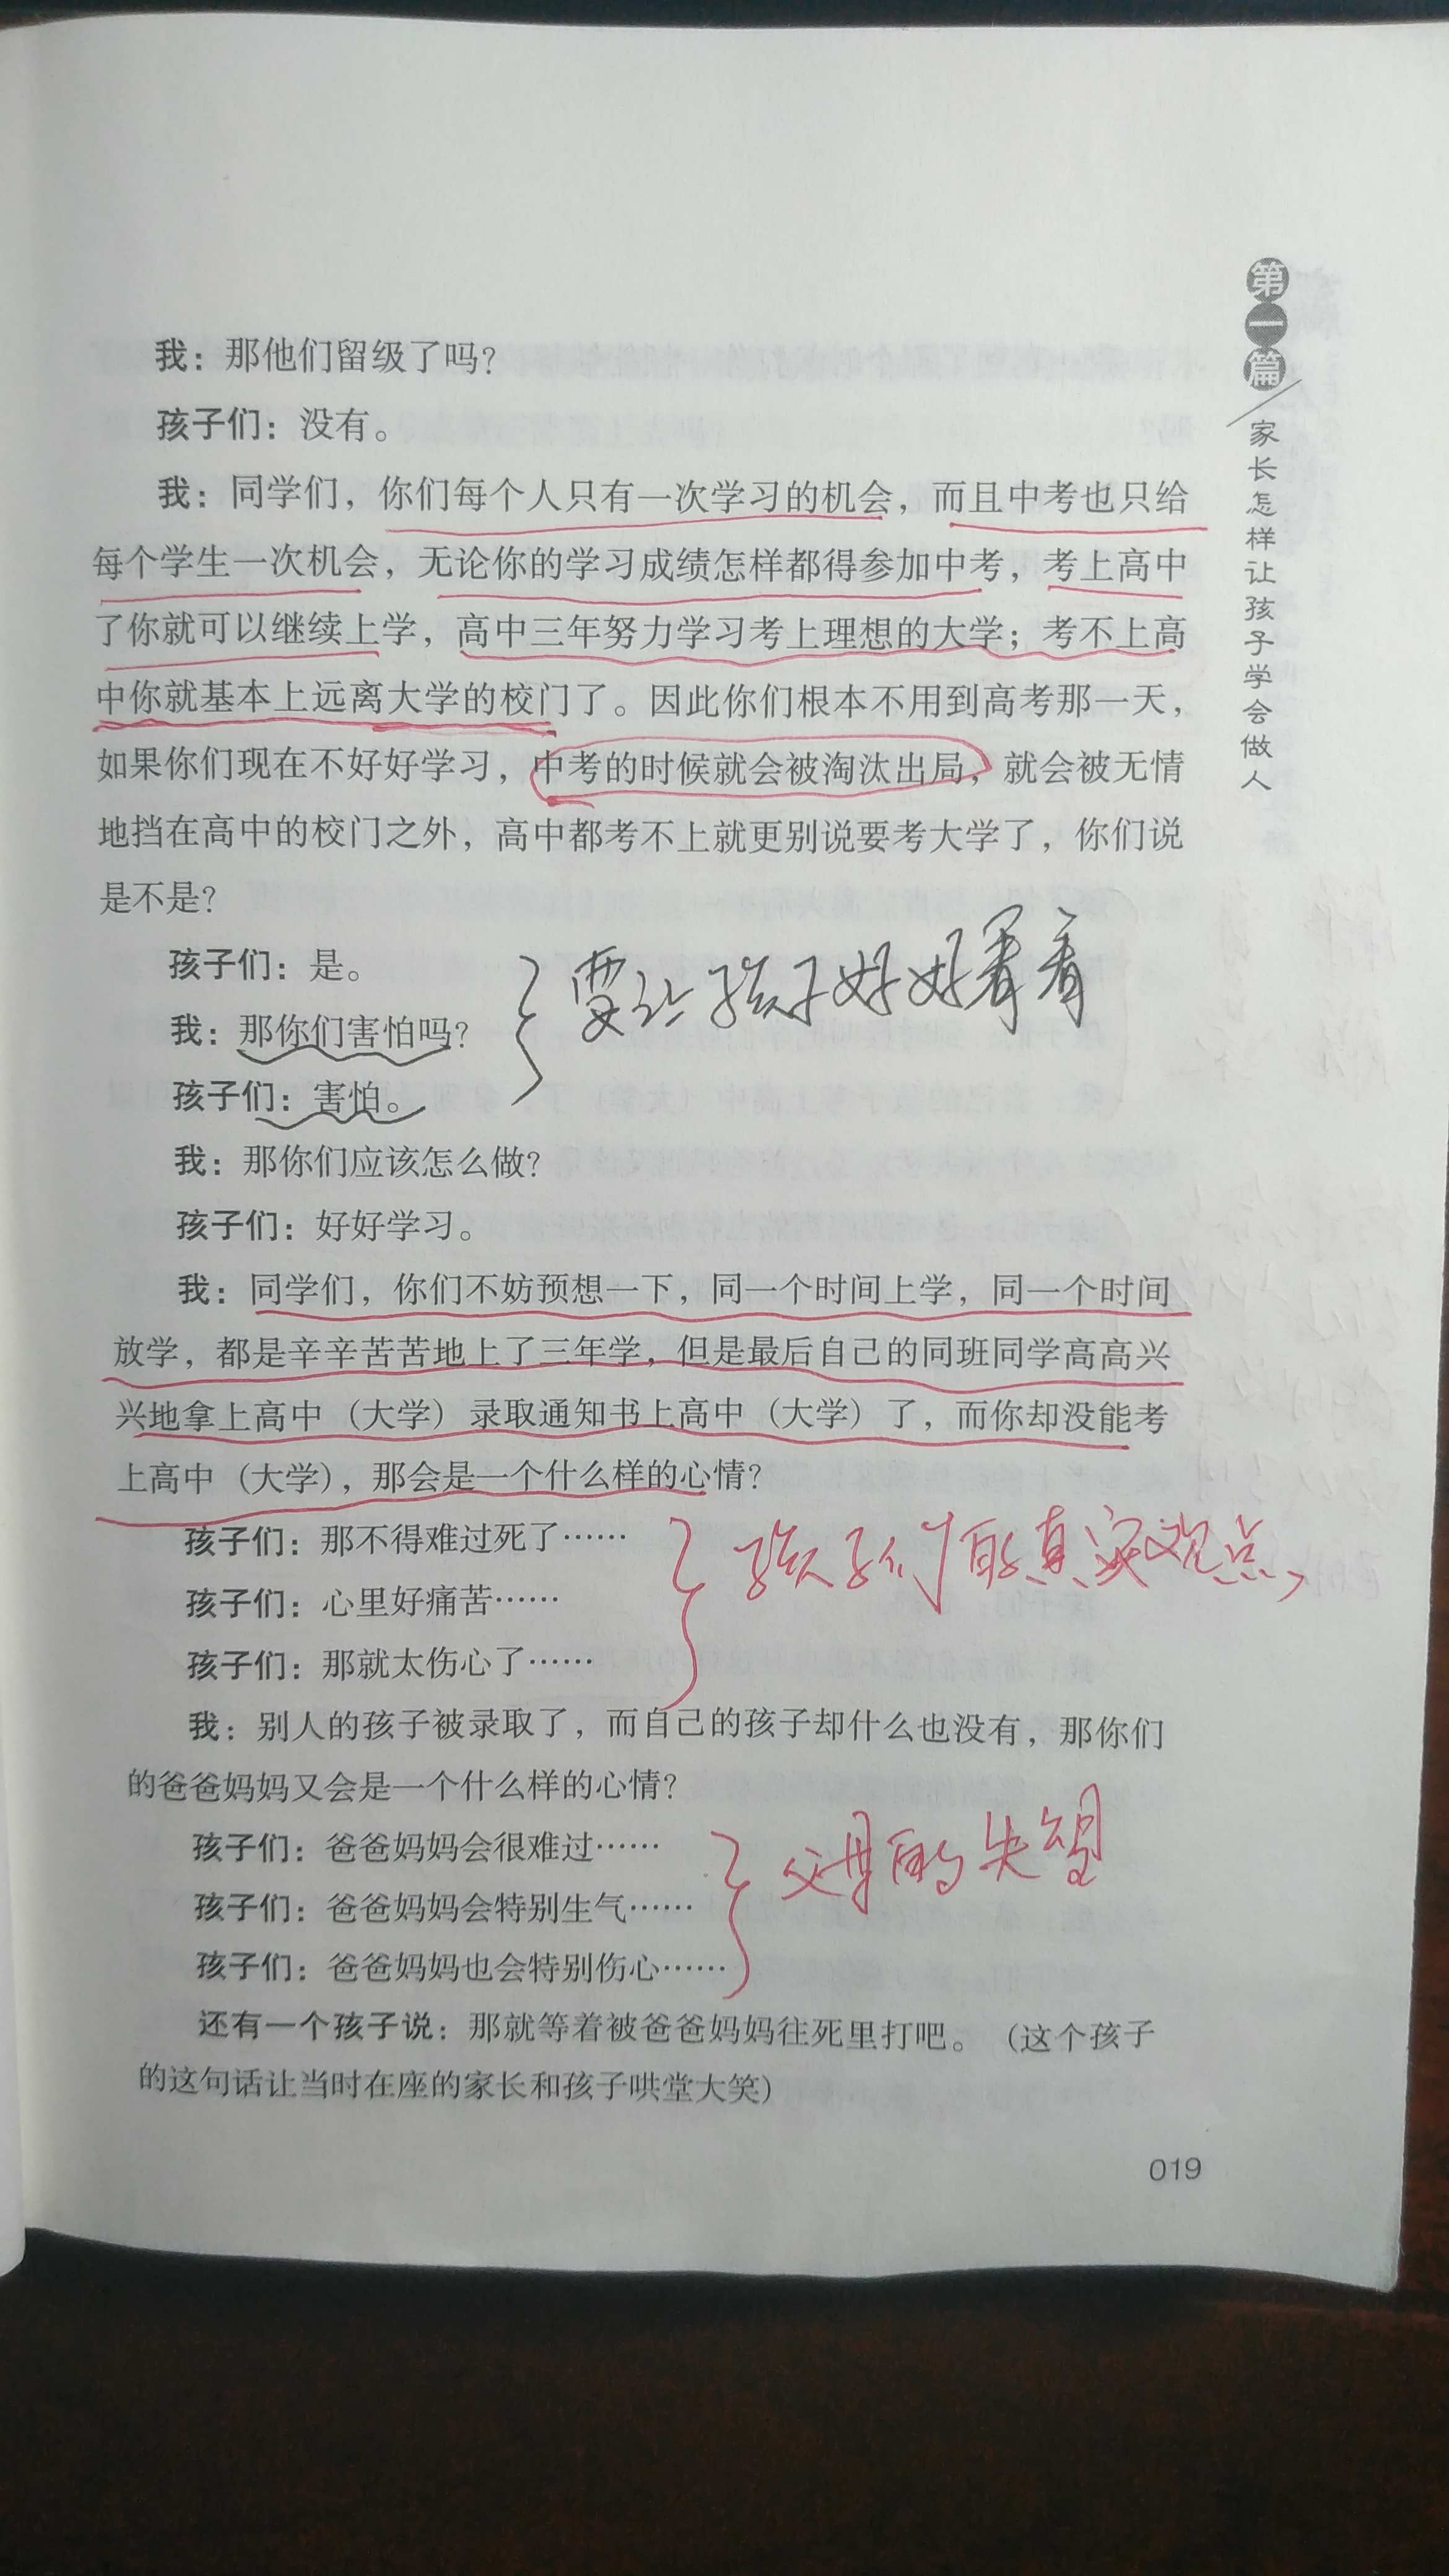 第一篇
家长怎样让孩子学会做人
我：那他们留级了吗？
孩子们：没有。
我：同学们，你们每个人只有一次学习的机会，而且中考也只给
每个学生一次机会，无论你的学习成绩怎样都得参加中考，考上高中
了你就可以继续上学，高中三年努力学习考上理想的大学；考不上高
中你就基本上远离大学的校门了。因此你们根本不用到高考那一天，
如果你们现在不好好学习，中考的时候就会被淘汰出局，就会被无情
地挡在高中的校门之外，高中都考不上就更别说要考大学了，你们说
是不是？
孩子们：是。
我：那你们害怕吗？
孩子们：害怕。
要让孩子好好看看
我：那你们应该怎么做？
孩子们：好好学习。
我：同学们，你们不妨预想一下，同一个时间上学，同一个时间
放学，都是辛辛苦苦地上了三年学，但是最后自己的同班同学高高兴
兴地拿上高中（大学）录取通知书上高中（大学）了，而你却没能考
上高中（大学），那会是一个什么样的心情？
孩子们：那不得难过死了……
孩子们：心里好痛苦……
孩子们：那就太伤心了……
孩子们的真实观点，
我：别人的孩子被录取了，而自己的孩子却什么也没有，那你们
的爸爸妈妈又会是一个什么样的心情？
孩子们：爸爸妈妈会很难过……
孩子们：爸爸妈妈会特别生气……
孩子们：爸爸妈妈也会特别伤心……
父母的失望
还有一个孩子说：那就等着被爸爸妈妈往死里打吧。（这个孩子
的这句话让当时在座的家长和孩子哄堂大笑）
019